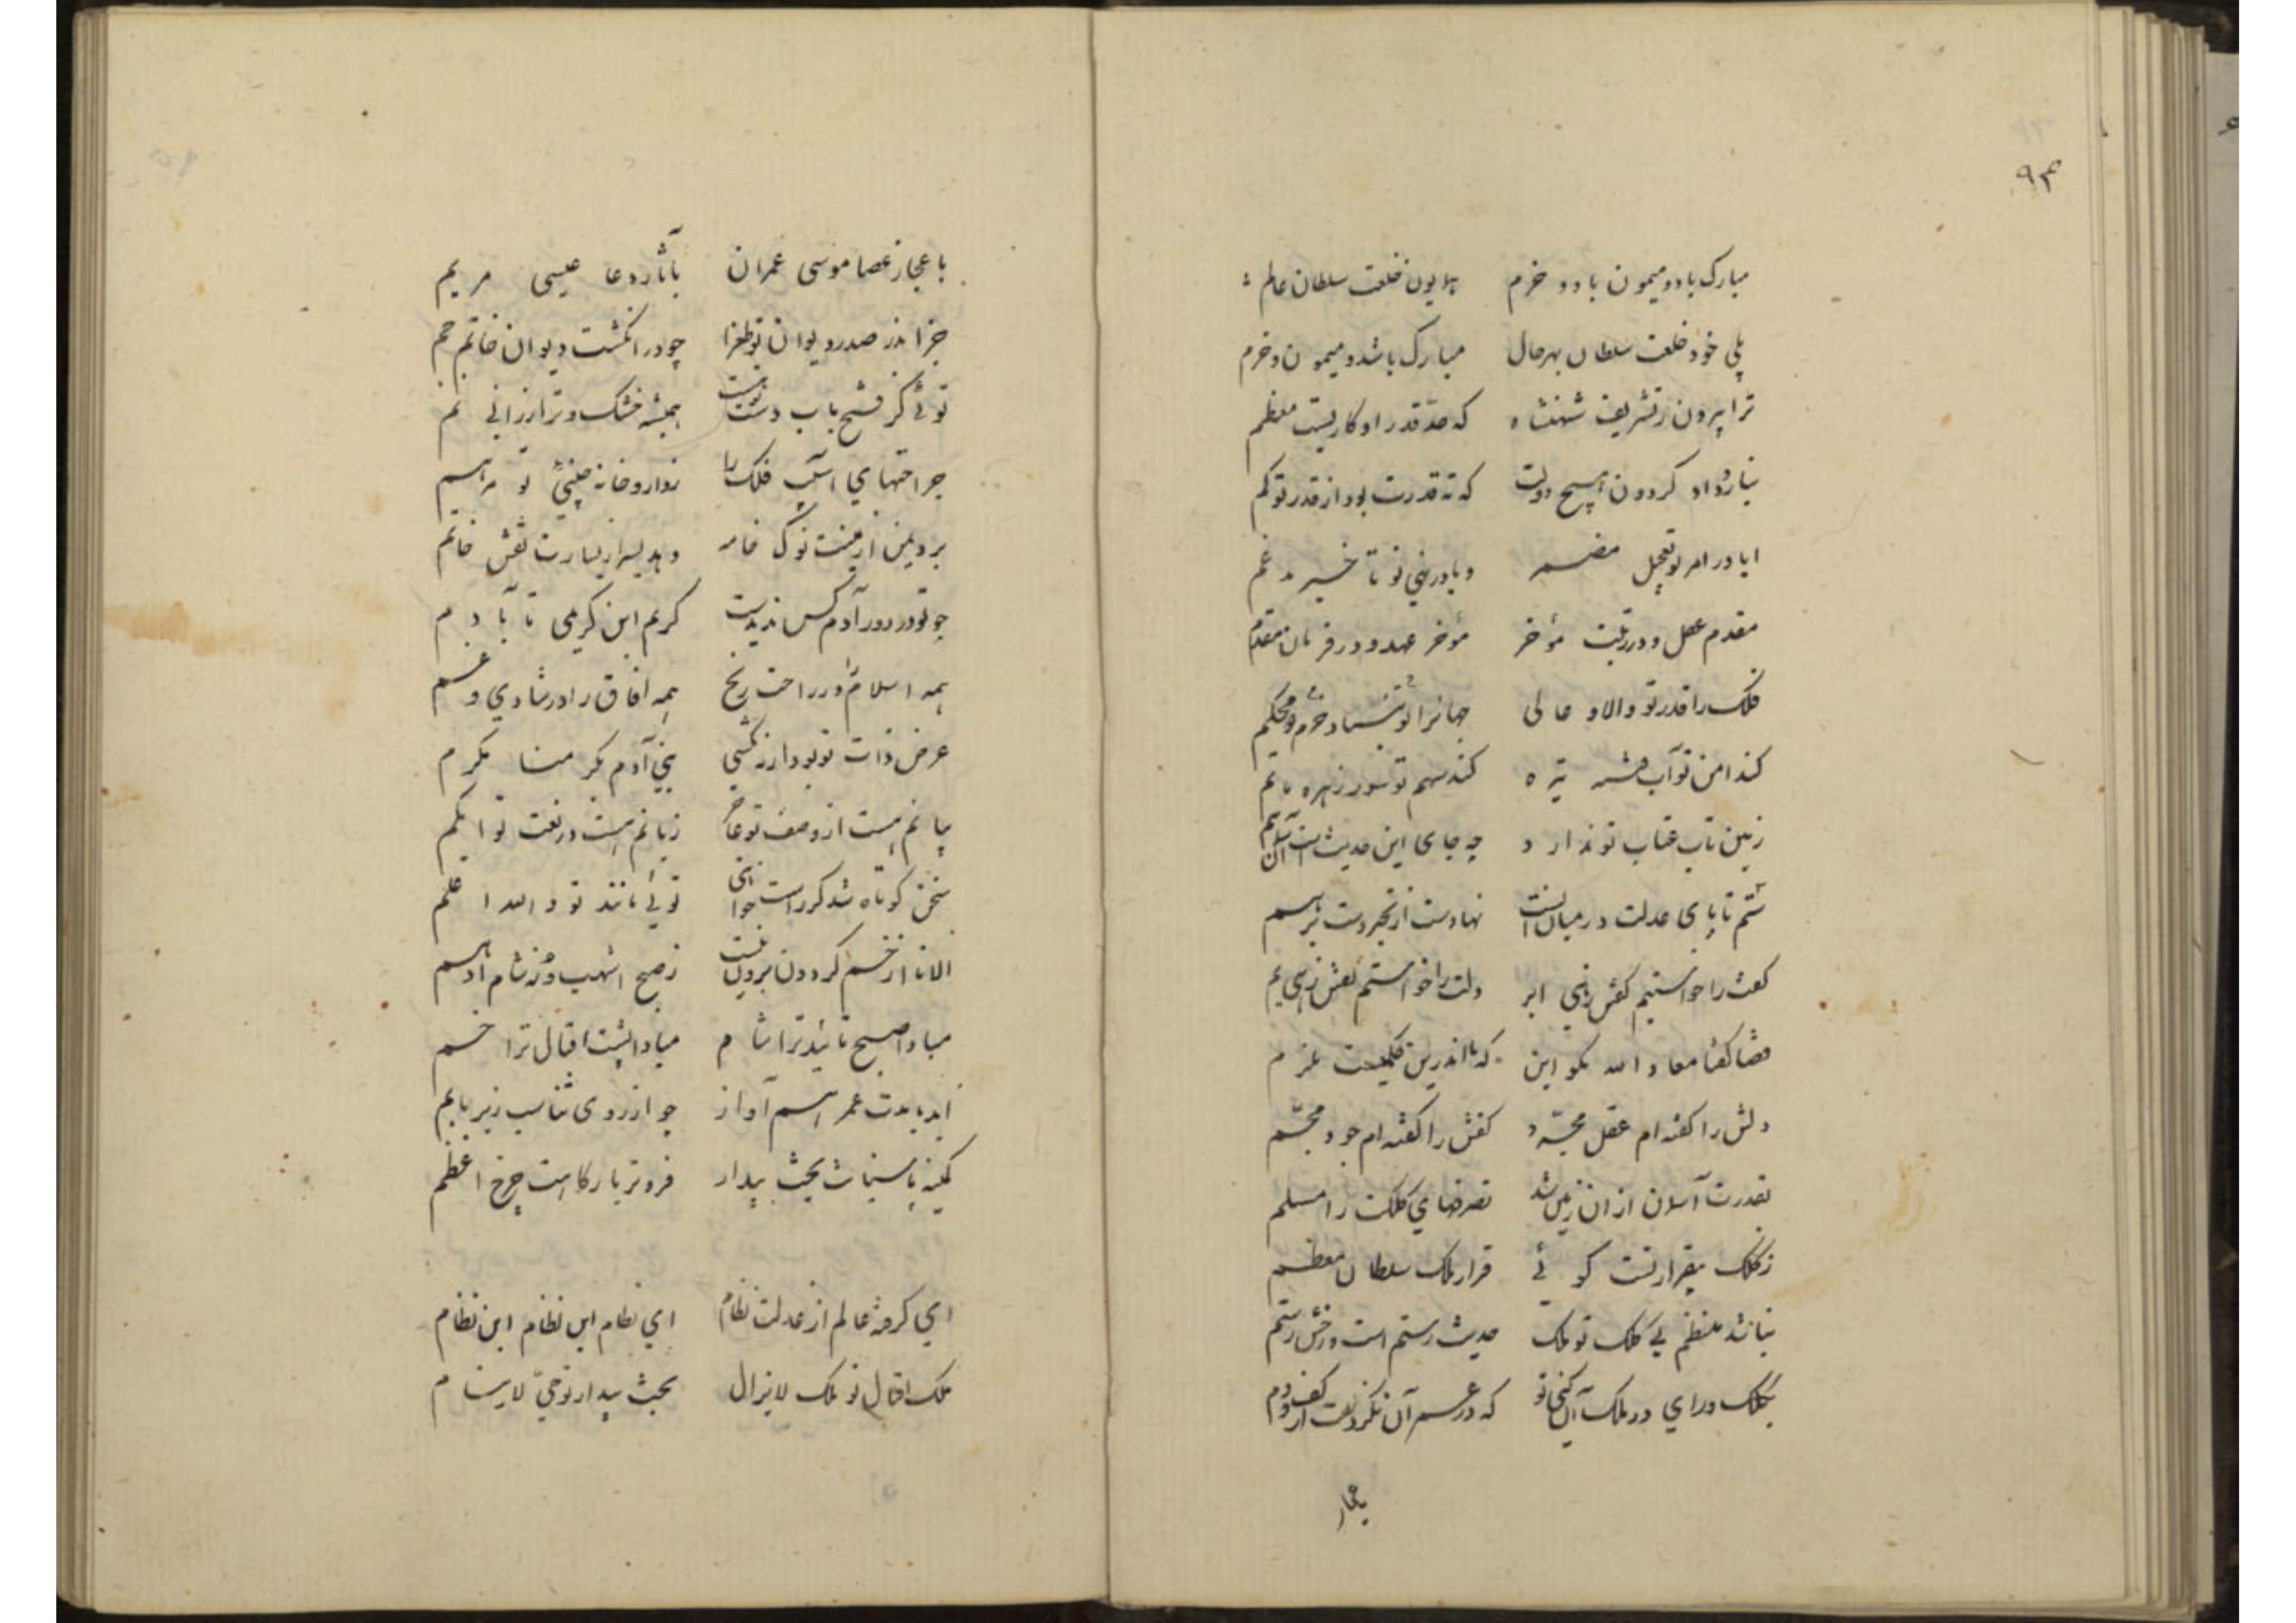 ۹۴
مبارک باد و میمون باد و خرم همایون خلعت سلطان عالم
بلی خود خلعت سلطان بهرحال مبارک باشد و میمون و خرم
ترا بیرون ز تشریف شهنشاه که حد قدر او کاریست معظم
نیارد داد کردون هیچ دولت که نه قدرت بود از قدر تو کم
ایا در امر تو تعجیل مضمر و یا در نهی تو تاخیر مدغم
مقدم عقل و در رتبت مؤخر مؤخر عهد و در فرمان مقدم
فلک را قدر تو والا و عالی جهانرا تو بنیاد محکم
کند امن تو آب فتنه تیره کند سهم تو سور زهره ماتم
زمین تاب عتاب تو ندارد چه جای این حدیثست آسمان هم
ستم تا پای عدلت در میانست نهادست از تحیر دست بر هم
کفت را خواستم کفتن زهی ابر دلت را خواستم کفتن زهی یم
قضا کفتا معاذ الله مکو این که ما اندرین حکمیست ملزم
دلش را کفته ام عقل مجرد کفش را کفته ام جود مجسم
بقدرت آسمان از ان زمین شد تصرفهای کلکت را مسلم
ز کلک بیقرار تست کوئی قرار ملک سلطان معظم
نباشد منتظم بی کلک تو ملک حدیث رستم است و رخش رستم
بکلک و رای در ملک آن کنی تو که در عمر آن نکردست از کف و دم
باعجاز
باعجاز عصا موسی عمران بآثار دعا عیسی مریم
جز اندر صدر دیوان تو طغرا چو در انکشت دیوان خاتم جم
توئی کز فتح باب دست تو نیست همیشه خشک و تر ارزانی نم
جراحتهای آسیب فلک را ز داروخانه تو مرهم
برد یمن از یمینت نوک خامه دهد یسر از یسارت نقش خاتم
چو تو در دور آدم کس ندیدست کریم ابن کریمی تا بآدم
همه اسلام را در راحت و رنج همه آفاق را در شادی و غم
عرض ذات تو بود ار نه نکشتی بنی آدم بکرمنا مکرم
بیانم هست از وصف تو عاجز زبانم هست در نعت تو ابکم
سخن کوتاه شد کر راست خواهی توئی مانند تو و الله اعلم
الا تا از خم کردون برون نیست ز صبح اشهب و ز شام ادهم
مبادا صبح تائید ترا شام مبادا پشت اقبال ترا خم
ابد با مدت عمر هم آواز چو از روی تناسب زیر با بم
کمینه پاسبانت بخت بیدار فروتر بارکاهت چرخ اعظم
ای کرفته عالم از عدلت نظام ای نظام ابن نظام ابن نظام
ملک اقبال تو ملک لایزال بخت بیدار تو حی لاینام